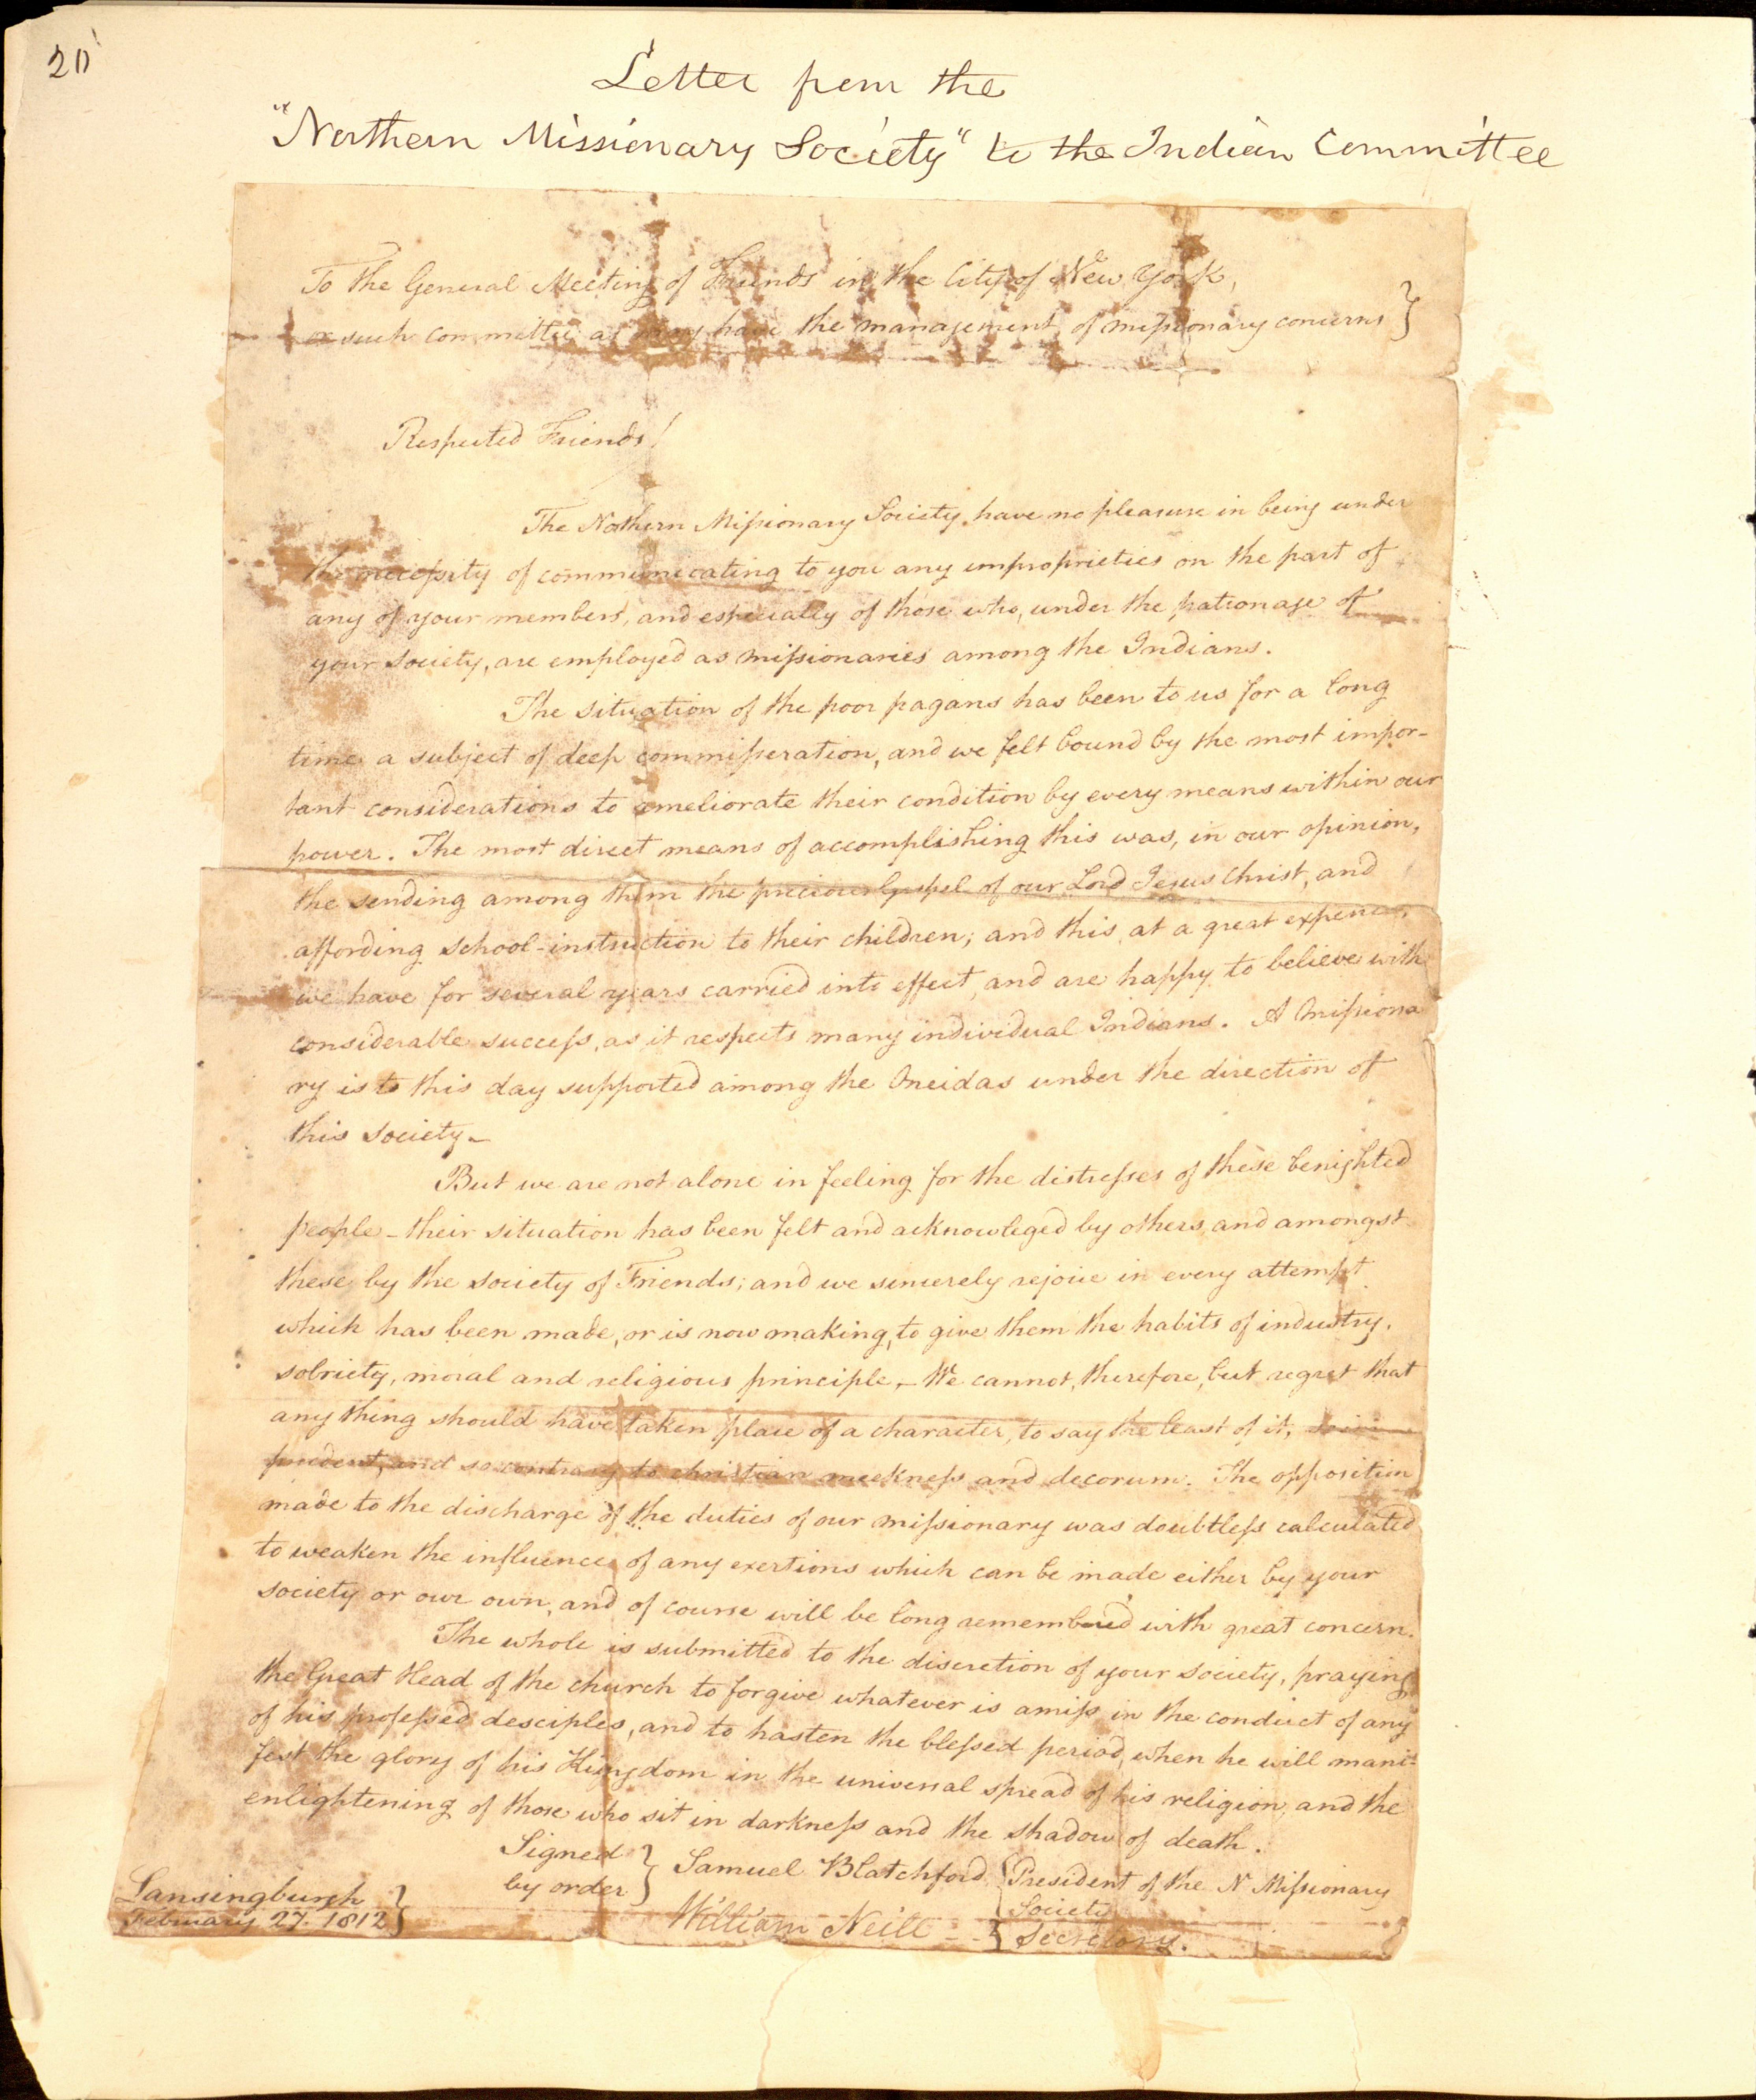 20
Letter from the
"Northern Missionary Society" to the Indian Committee
To the General Meeting of Friends in the City of New York,
or such committee as may have the management of missionary concerns }
Respected Friends!
The Nothern Missionary Society have no pleasure in being under
the necessity of communicating to you any improprieties on the part of
any of your members, and especially of those who, under the patronage of
your society, are employed as missionaries among the Indians.
The situation of the poor pagans has been to us for a long
time a subject of deep commisseration, and we felt bound by the most impor-
tant considerations to ameliorate their condition by every means within our
power. The most direct means of accomplishing this was, in our opinion,
the sending among them the precious Gospel of our Lord Jesus Christ, and
affording school-instruction to their children; and this, at a great expence,
we have for several years carried into effect, and are happy to believe with
considerable success, as it respects many individual Indians. A missiona
ry is to this day supported among the Oneidas under the direction of
this society.
But we are not alone in feeling for the distresses of these benighted
people - their situation has been felt and acknowleged by others, and amongst
these by the society of Friends; and we sincerely rejoice in every attempt
which has been made, or is now making, to give them the habits of industry,
sobriety, moral and religious principle. We cannot, therefore, but regret that
any thing should have taken place of a character, to say the least of it,
prudent, and so contrary to christian meekness and decorum. The opposition
made to the discharge of the duties of our missionary was doubtless calculated
to weaken the influence of any exertions which can be made either by your
society or our own, and of course will be long remembered with great concern.
The whole is submitted to the discretion of your society, praying
the Great Head of the church to forgive whatever is amiss in the conduct of any
of his professed desciples, and to hasten the blessed period, when he will mani-
fest the glory of his Kingdom in the universal spread of his religion, and the
enlightening of those who sit in darkness and the shadow of death.
Signed by order } Samuel Blatchford { President of the N Missionary Society
William Neill - - } Secretary.
Lansingburgh
February 27. 1812 }